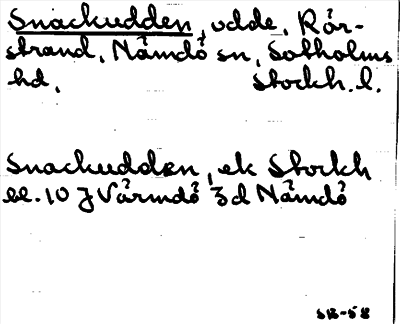 Snackudden, udde, Rör-
strand, Nämdö sn, Sotholms
hd, Stockh. l.
Snackudden, ek Stockh
bl. 10 J Värmdö 3d Nämdö
SB-58